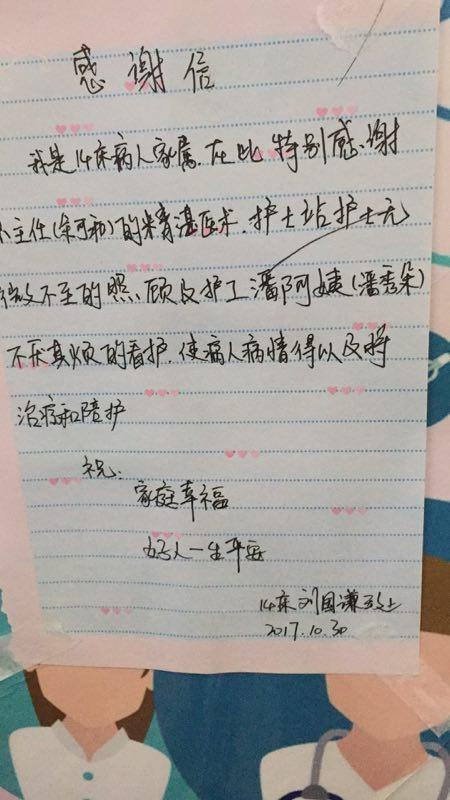 感谢信
我是14床病人家属.在此特别感谢
主任(余可和)的精湛医术.护士站护士无
微不至的照顾及护工潘阿姨(潘秀朵)
不厌其烦的看护.使病人病情得以及时
治疗和陪护
祝.
家庭幸福
好人一生平安
14床刘国谦致上
2017.10.30